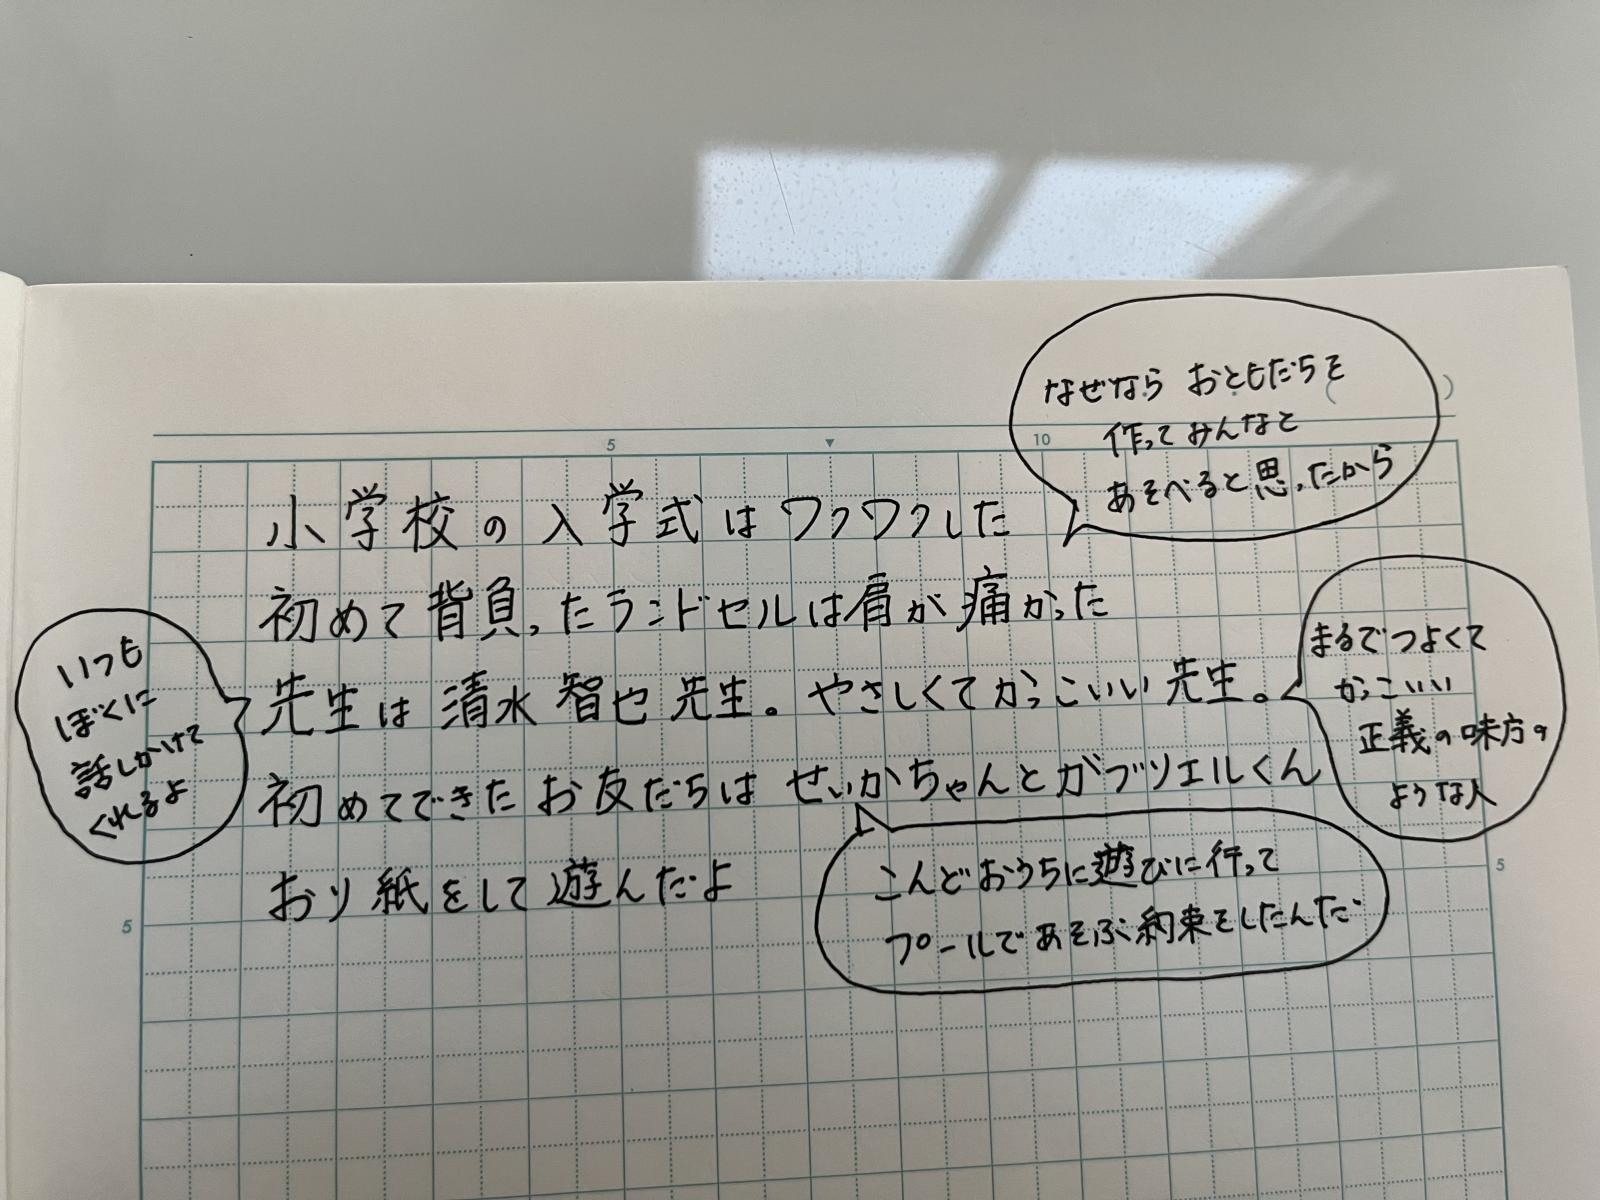 なぜなら おともだちを
作ってみんなと
あそべると思ったから
5
10
( )
小学校の入学式はワクワクした
初めて背負ったランドセルは肩が痛かった
先生は清水智也先生。やさしくてかっこいい先生。
いつも
ぼくに
話しかけて
くれるよ
まるでつよくて
かっこいい
正義の味方の
ような人
初めてできたお友だちはせいかちゃんとガブリエルくん
おり紙をして遊んだよ
こんどおうちに遊びに行って
プールであそぶ約束をしたんだ
5
5